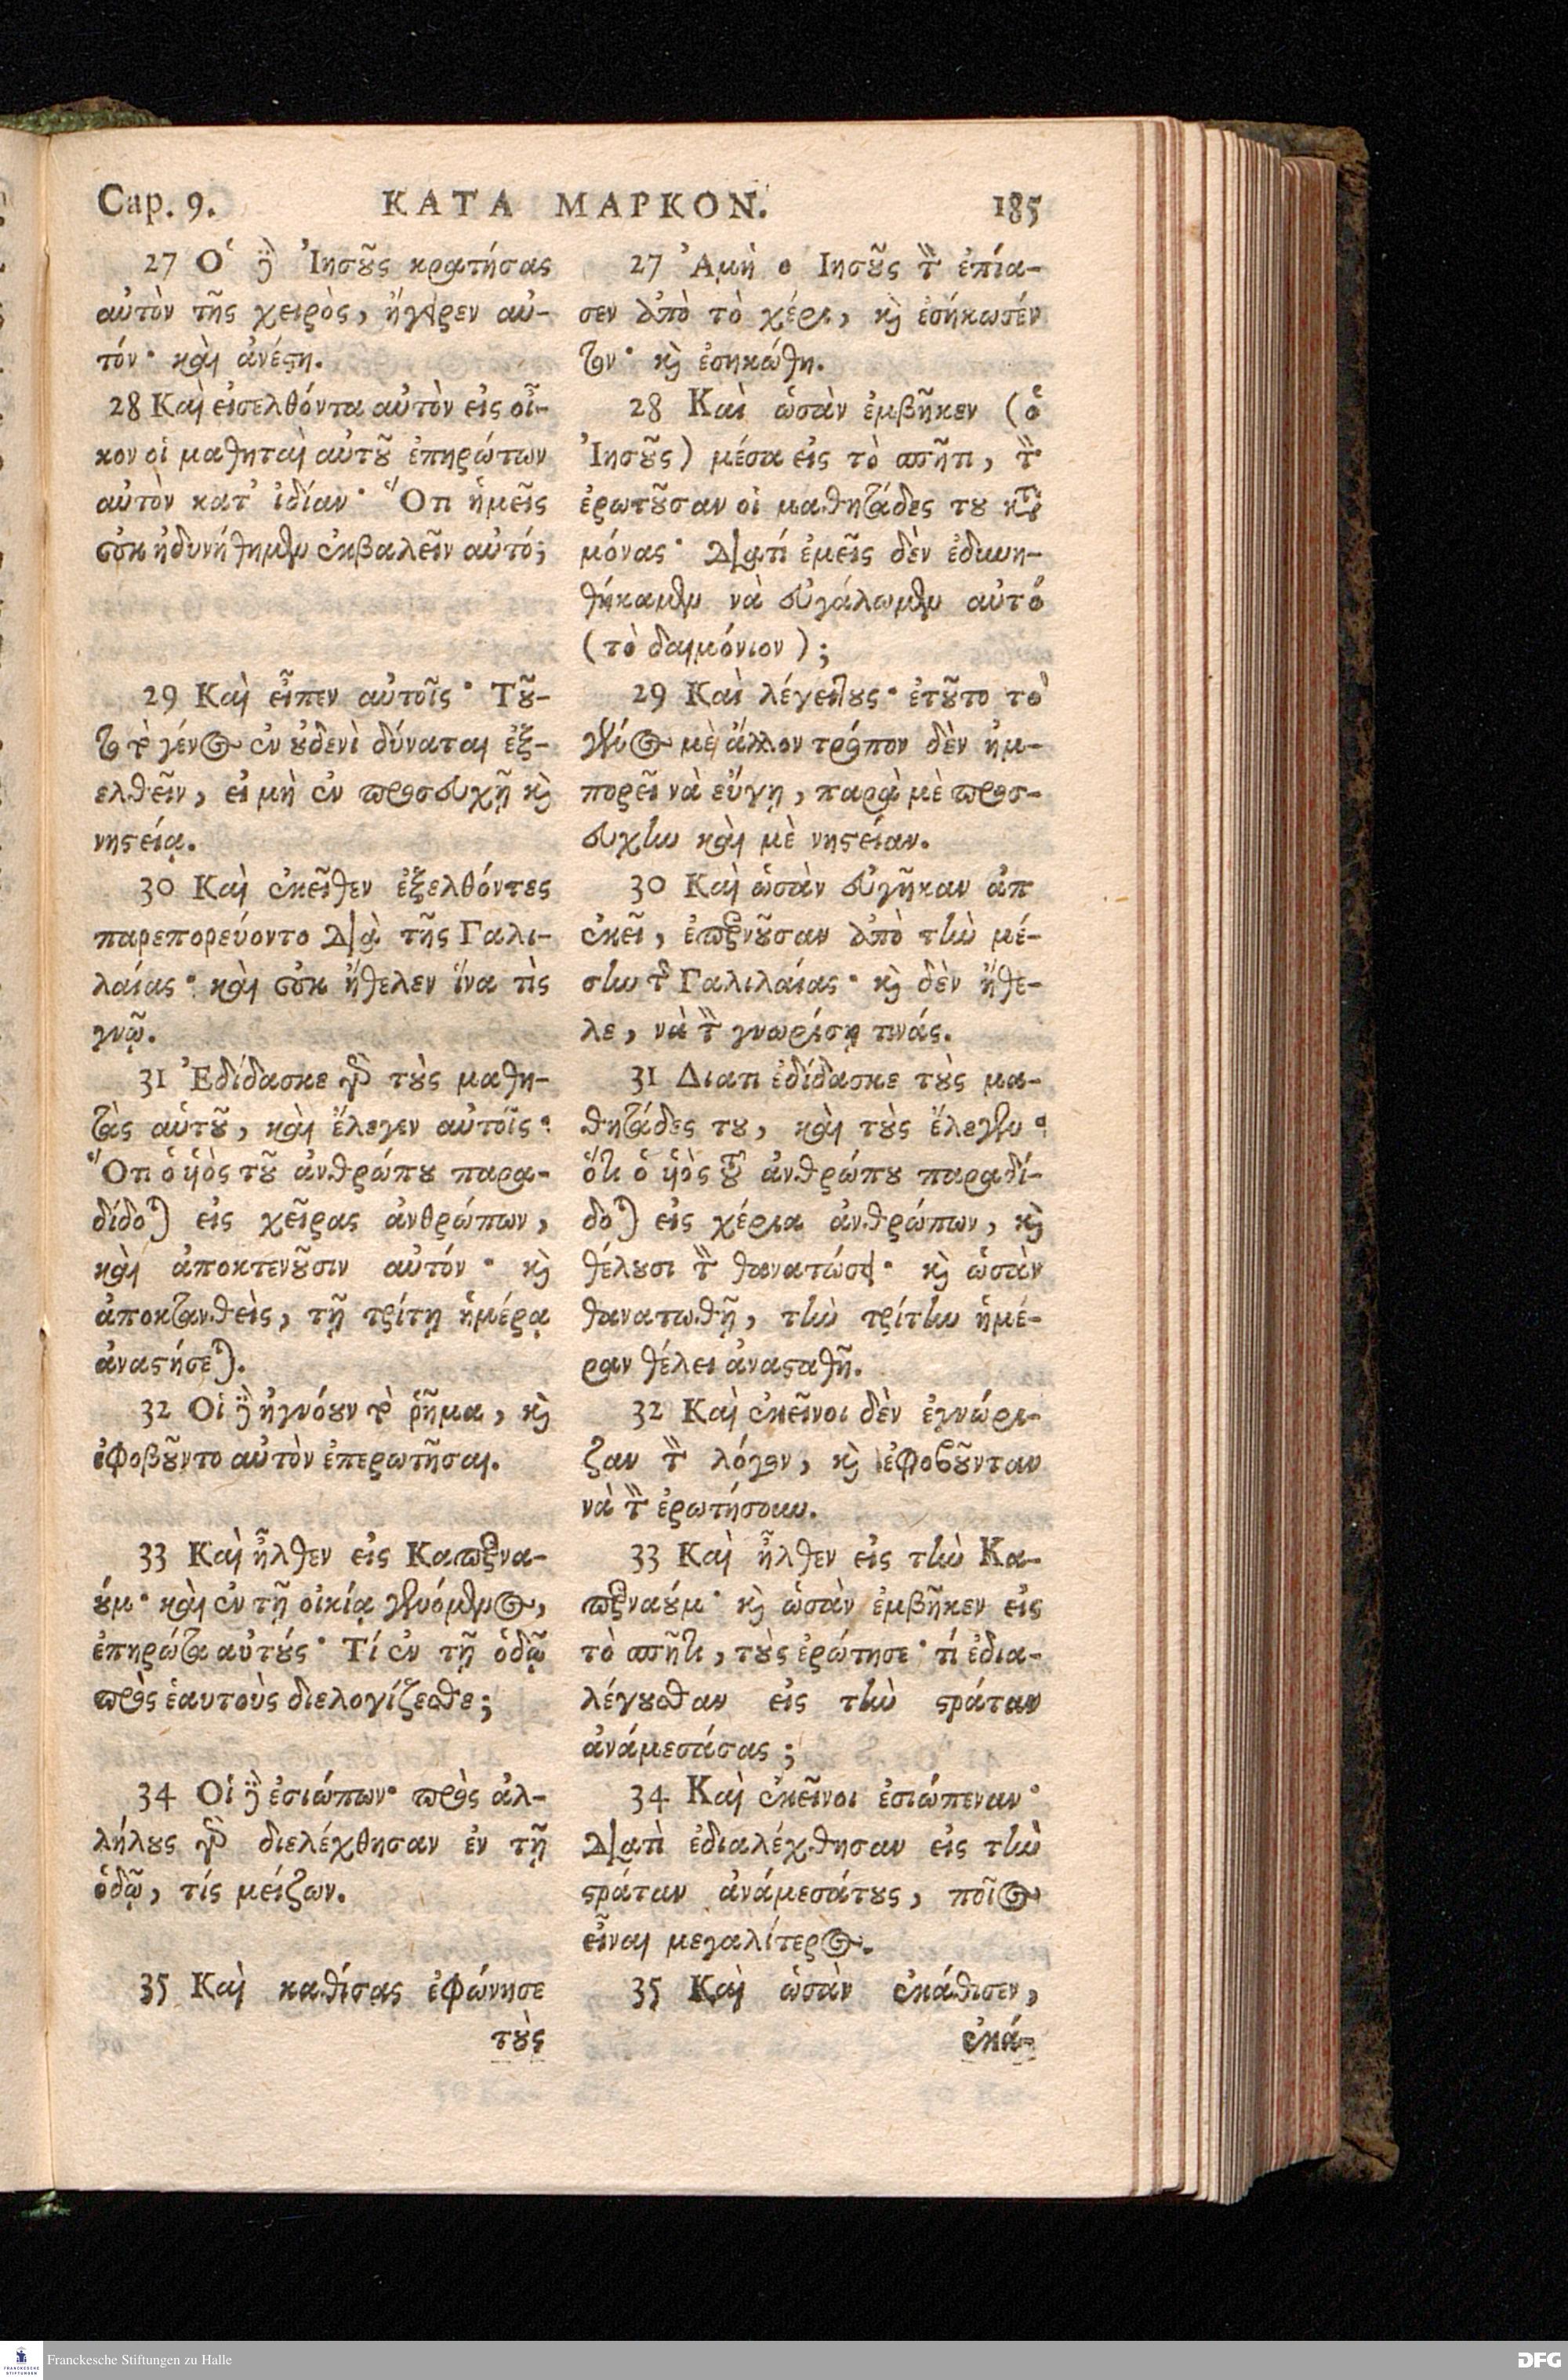 Cap. 9. ΚΑΤΑ ΜΑΡΚΟΝ. 185
27 Ὁ δὲ Ἰησοῦς κρατήσας
αὐτὸν τῆς χειρὸς, ἤγειρεν αὐ-
τόν· καὶ ἀνέστη.
28 Καὶ εἰσελθόντα αὐτὸν εἰς οἶ-
κον οἱ μαθηταὶ αὐτοῦ ἐπηρώτων
αὐτὸν κατ' ἰδίαν· Ὅτι ἡμεῖς
οὐκ ἠδυνήθημεν ἐκβαλεῖν αὐτό;
29 Καὶ εἶπεν αὐτοῖς· Τοῦ-
το τὸ γένος ἐν οὐδενὶ δύναται ἐξ-
ελθεῖν, εἰ μὴ ἐν προσευχῇ καὶ
νηστείᾳ.
30 Καὶ ἐκεῖθεν ἐξελθόντες
παρεπορεύοντο διὰ τῆς Γαλι-
λαίας· καὶ οὐκ ἤθελεν ἵνα τὶς
γνῷ.
31 Ἐδίδασκε γὰρ τοὺς μαθη-
τὰς αὑτοῦ, καὶ ἔλεγεν αὐτοῖς·
Ὅτι ὁ υἱὸς τοῦ ἀνθρώπου παρα-
δίδοται εἰς χεῖρας ἀνθρώπων,
καὶ ἀποκτενοῦσιν αὐτόν· καὶ
ἀποκτανθεὶς, τῇ τρίτῃ ἡμέρᾳ
ἀναστήσεται.
32 Οἱ δὲ ἠγνόουν τὸ ῥῆμα, καὶ
ἐφοβοῦντο αὐτὸν ἐπερωτῆσαι.
33 Καὶ ἦλθεν εἰς Καπερνα-
ούμ· καὶ ἐν τῇ οἰκίᾳ γενόμενος,
ἐπηρώτα αὐτούς· Τί ἐν τῇ ὁδῷ
πρὸς ἑαυτοὺς διελογίζεσθε;
34 Οἱ δὲ ἐσιώπων· πρὸς ἀλ-
λήλους γὰρ διελέχθησαν ἐν τῇ
ὁδῷ, τίς μείζων.
35 Καὶ καθίσας ἐφώνησε
τοὺς
27 Ἀμὴ ο Ιησοῦς τὸν ἐπία-
σεν ἀπὸ τὸ χέρι, καὶ ἐσήκωσέν
τον· καὶ ἐσηκώθη.
28 Καὶ ὡσὰν ἐμβῆκεν (ὁ
Ἰησοῦς) μέσα εἰς τὸ σπῆτι, τὸν
ἐρωτοῦσαν οἱ μαθητάδες του κατὰ
μόνας· Διατί ἐμεῖς δὲν ἐδυνη-
θήκαμεν νὰ εὐγάλωμεν αὐτό
(τὸ δαιμόνιον);
29 Καὶ λέγει τους· ἐτοῦτο τὸ
γένος μὲ ἄλλον τρόπον δὲν ἠμ-
πορεῖ νὰ εὔγῃ, παρὰ μὲ προσ-
ευχὴν καὶ μὲ νηστείαν.
30 Καὶ ὡσὰν εὐγῆκαν ἀπ
ἐκεῖ, ἐπερνοῦσαν ἀπὸ τὴν μέ-
σην τῆς Γαλιλαίας· καὶ δὲν ἤθε-
λε, νὰ τὸν γνωρίσῃ τινάς.
31 Διατι ἐδίδασκε τοὺς μα-
θητάδες του, καὶ τοὺς ἔλεγεν·
ὅτι ὁ υἱὸς τοῦ ἀνθρώπου παραδί-
δοται εἰς χέρια ἀνθρώπων, καὶ
θέλουσι τὸν θανατώσει· καὶ ὡσὰν
θανατωθῇ, τὴν τρίτην ἡμέ-
ραν θέλει ἀνασταθῆ.
32 Καὶ ἐκεῖνοι δὲν ἐγνώρι-
ζαν τὸν λόγον, καὶ ἐφοβοῦνταν
νὰ τὸν ἐρωτήσουν.
33 Καὶ ἦλθεν εἰς τὴν Κα-
περναούμ· καὶ ὡσὰν ἐμβῆκεν εἰς
τὸ σπῆτι, τοὺς ἐρώτησε· τί ἐδια-
λέγουσθαν εἰς τὴν στράταν
ἀνάμεσάσας;
34 Καὶ ἐκεῖνοι ἐσιώπεναν·
Διατὶ ἐδιαλέχθησαν εἰς τὴν
στράταν ἀνάμεσάτους, ποῖος
εἶναι μεγαλίτερος.
35 Καὶ ὡσὰν ἐκάθισεν,
ἐκά-
FRANCKESCHE STIFTUNGEN
Franckesche Stiftungen zu Halle
DFG